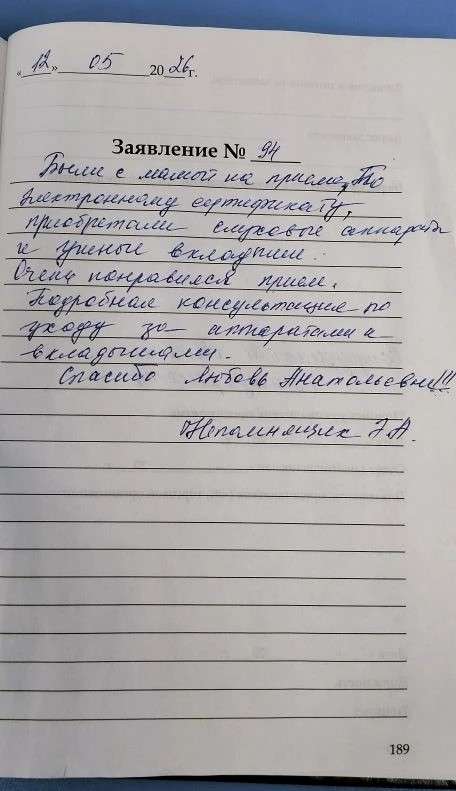 «12» 05 2026 г.
Заявление № 94
Были с мамой на приеме. По
электронному сертификату,
приобретали слуховые аппараты
и ушные вкладыши.
Очень понравился прием.
Подробная консультация по
уходу за аппаратами и
вкладышами.
Спасибо Любовь Анатольевне!!!
Непомнящих Т.А.
189